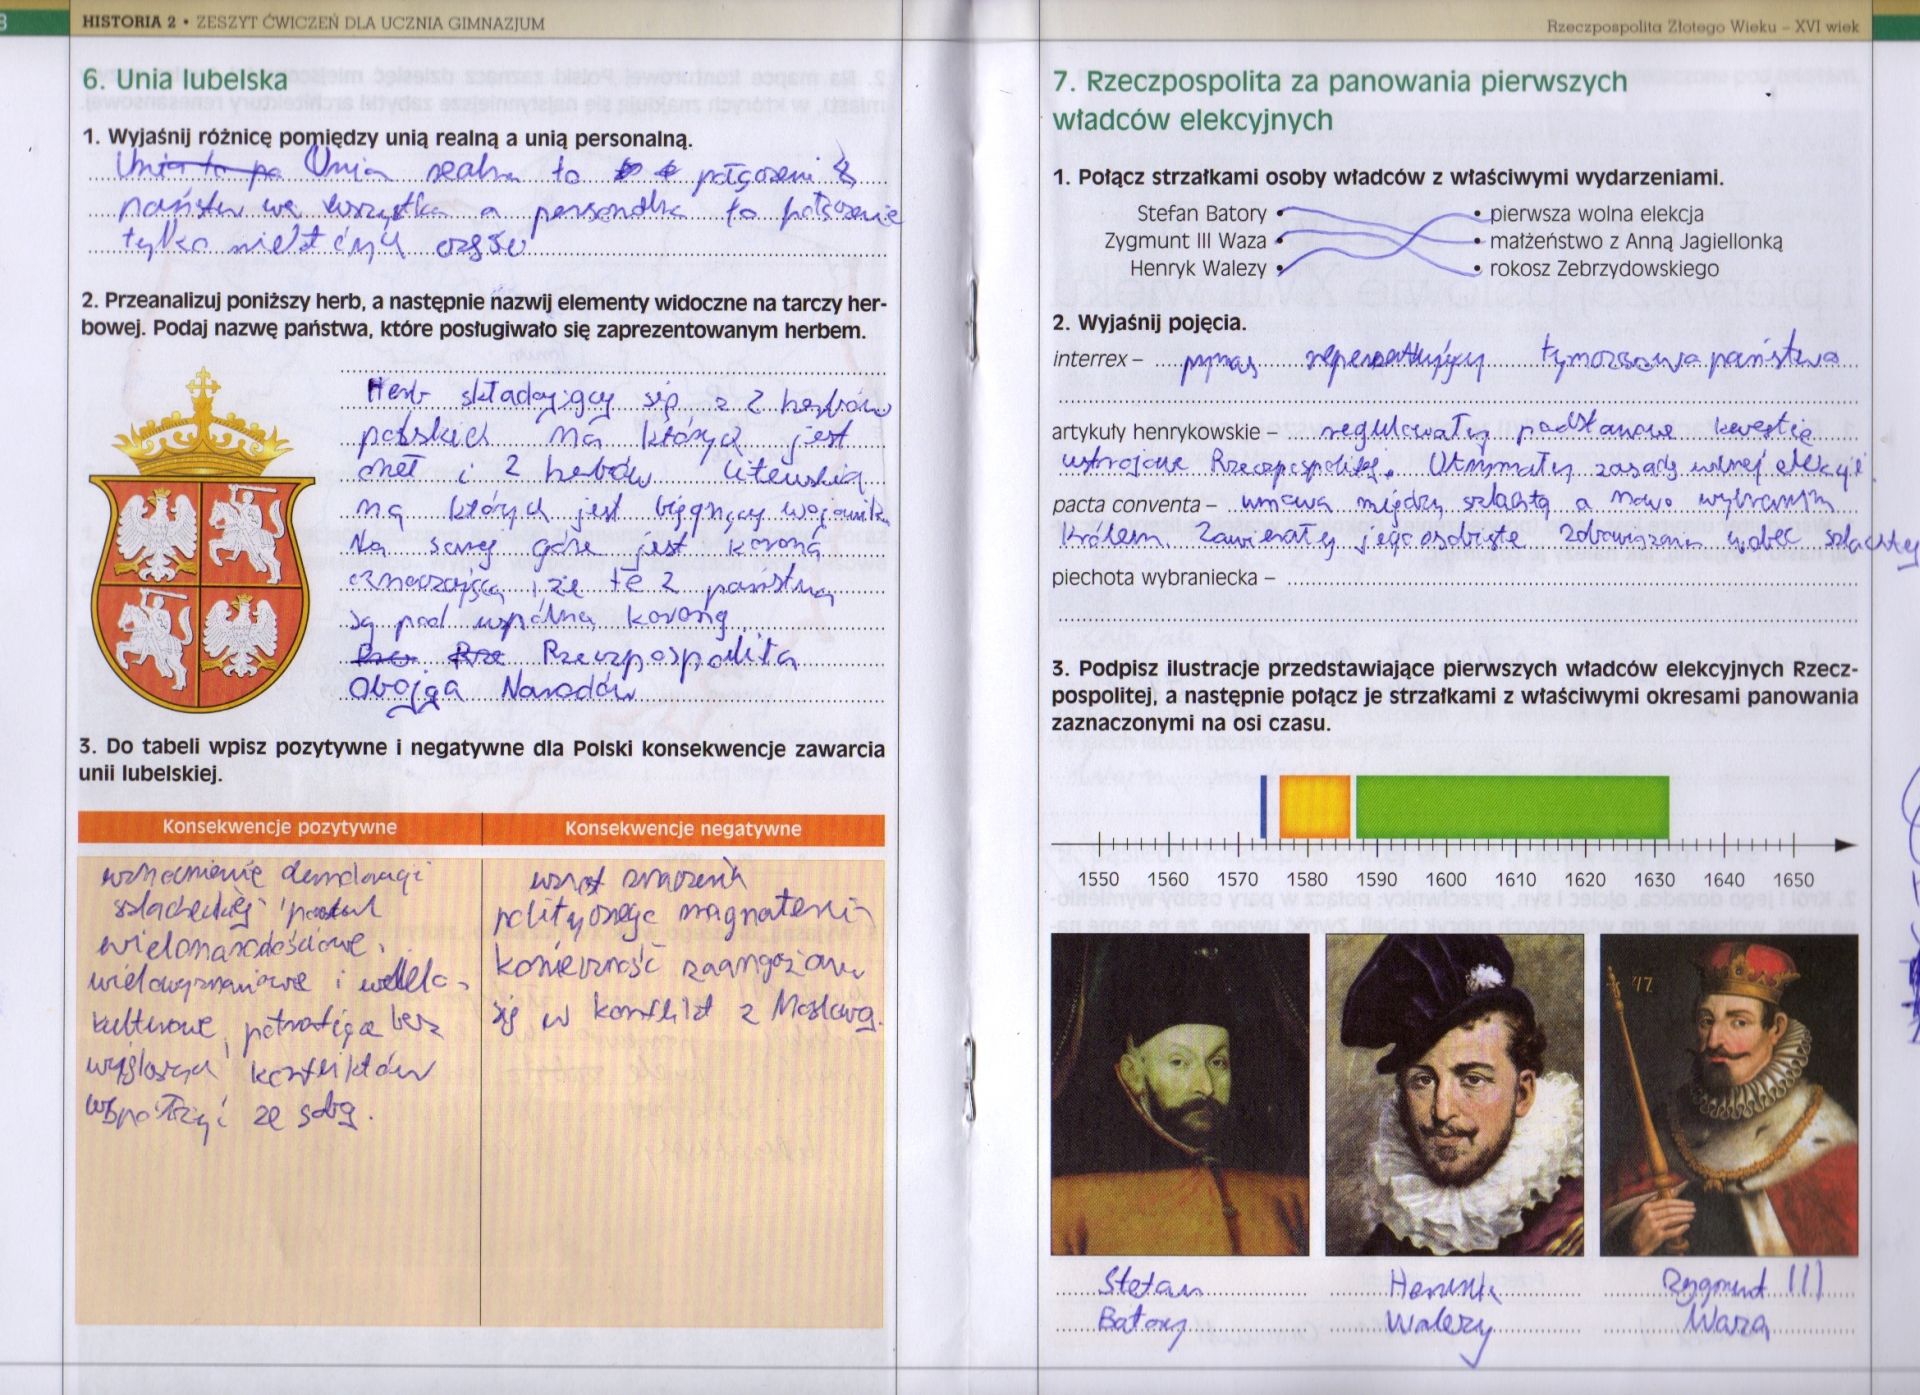 HISTORIA 2 • ZESZYT ĆWICZEŃ DLA UCZNIA GIMNAZJUM
6. Unia lubelska
1. Wyjaśnij różnicę pomiędzy unią realną a unią personalną.
Unia realna to połączeni
państw we wszystko a personalna to połączenie
tylko niektórych części
2. Przeanalizuj poniższy herb, a następnie nazwij elementy widoczne na tarczy her-
bowej. Podaj nazwę państwa, które posługiwało się zaprezentowanym herbem.
Herb składający się z 2 herbów
polskich na których jest
orzeł i 2 herbów litewskich
na których jest biegnący wojownik
Na samej górze jest korona
oznaczająca, że te 2 państwa
są pod wspólną koroną
Rzeczpospolita
Obojga Narodów
3. Do tabeli wpisz pozytywne i negatywne dla Polski konsekwencje zawarcia
unii lubelskiej.
Konsekwencje pozytywne
Konsekwencje negatywne
wzmocnienie demokracji
szlacheckiej
wielonarodościowe,
wielowyznaniowe i wielo-
kulturowe, potrafiące bez
większych konfliktów
współżyć ze sobą.
wzrost znaczenia
politycznego magnaterii
konieczność zaangażowa
się w konflikt z Moskwą.
Rzeczpospolita Złotego Wieku – XVI wiek
7. Rzeczpospolita za panowania pierwszych
władców elekcyjnych
1. Połącz strzałkami osoby władców z właściwymi wydarzeniami.
Stefan Batory • • pierwsza wolna elekcja
Zygmunt III Waza • • małżeństwo z Anną Jagiellonką
Henryk Walezy • • rokosz Zebrzydowskiego
2. Wyjaśnij pojęcia.
interrex – prymas reprezentujący tymczasowo państwo
artykuły henrykowskie – regulowały podstawowe kwestie
ustrojowe Rzeczpospolitej. Utrzymały zasadę wolnej elekcji.
pacta conventa – umowa między szlachtą a nowo wybranym
królem. Zawierały jego osobiste zobowiązania wobec szlachty
piechota wybraniecka –
3. Podpisz ilustracje przedstawiające pierwszych władców elekcyjnych Rzecz-
pospolitej, a następnie połącz je strzałkami z właściwymi okresami panowania
zaznaczonymi na osi czasu.
1550 1560 1570 1580 1590 1600 1610 1620 1630 1640 1650
Stefan
Batory
Henryk
Walezy
Zygmunt III
Waza